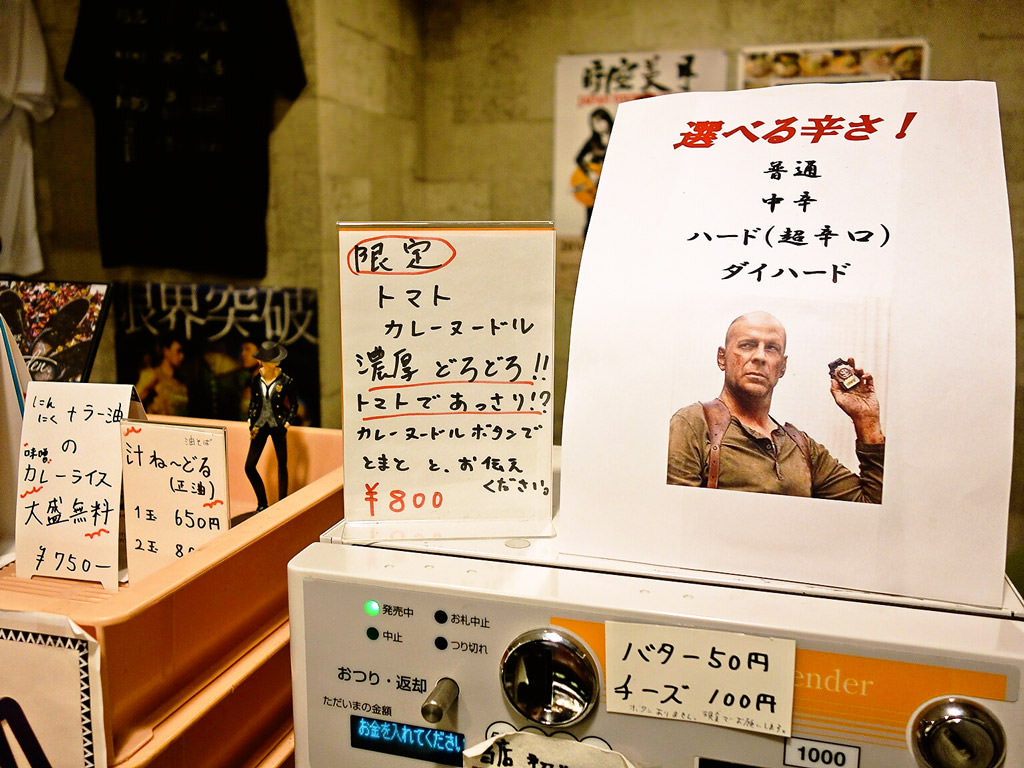 選べる辛さ!
普通
中辛
ハード(超辛口)
ダイハード
限定
トマト
カレーヌードル
濃厚どろどろ!!
トマトであっさり!?
カレーヌードルボタンで
とまと と、お伝え
ください。
¥800
限界突破
にん
にく
+ラー油
の
味噌
カレーライス
大盛無料
¥750-
油そば
汁ね〜どる
(正油)
1玉 650円
2玉
発売中
お札中止
中止
つり切れ
おつり・返却
ただいまの金額
お金を入れてくださ
バター50円
チーズ 100円
ender
1000